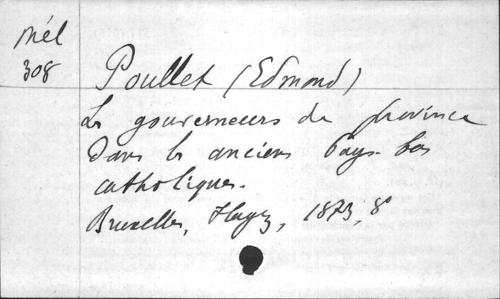 Mél
308
Poullet (Edmond)
Les gouverneurs de province
dans les anciens Pays-bas
catholiques.
Bruxelles, Hayez, 1873, 8°